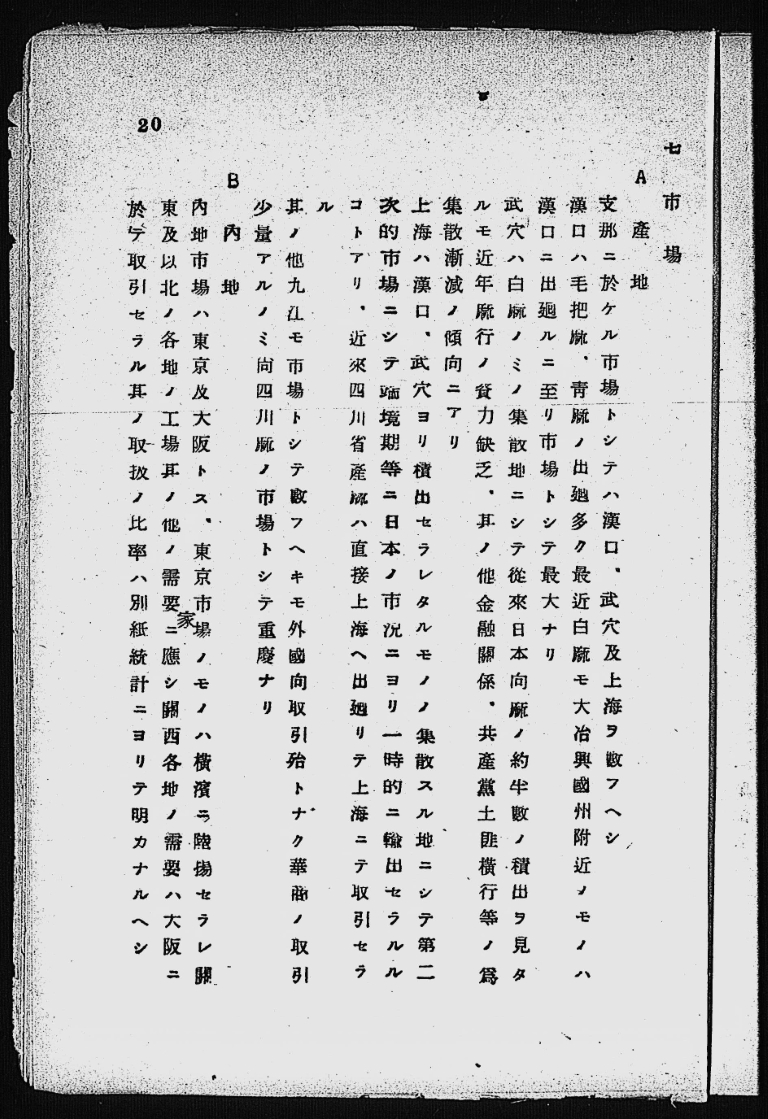 七市場
A 產地
支那ニ於ケル市場トシテハ漢口、武穴及上海ヲ數フヘシ
漢口ハ毛把麻、靑麻ノ出廻多ク最近白麻モ大冶興國州附近ノモノハ
漢口ニ出廻ルニ至リ市場トシテ最大ナリ
武穴ハ白麻ノミノ集散地ニシテ從來日本向麻ノ約半數ノ積出ヲ見タ
ルモ近年麻行ノ資力缺乏、其ノ他金融關係、共產黨土匪橫行等ノ爲
集散漸減ノ傾向ニアリ
上海ハ漢口、武穴ヨリ積出セラレタルモノノ集散スル地ニシテ第二
次的市場ニシテ端境期等ニ日本ノ市況ニヨリ一時的ニ輸出セラルル
コトアリ、近來四川省產麻ハ直接上海ヘ出廻リテ上海ニテ取引セラ
ル
其ノ他九江モ市場トシテ數フヘキモ外國向取引殆トナク華商ノ取引
少量アルノミ尚四川麻ノ市場トシテ重慶ナリ
B 內地
內地市場ハ東京及大阪トス、東京市場ノモノハ橫濱ニ陸揚セラレ關
東及以北ノ各地ノ工場其ノ他ノ需要家ニ應シ關西各地ノ需要ハ大阪ニ
於テ取引セラル其ノ取扱ノ比率ハ別紙統計ニヨリテ明カナルヘシ
20